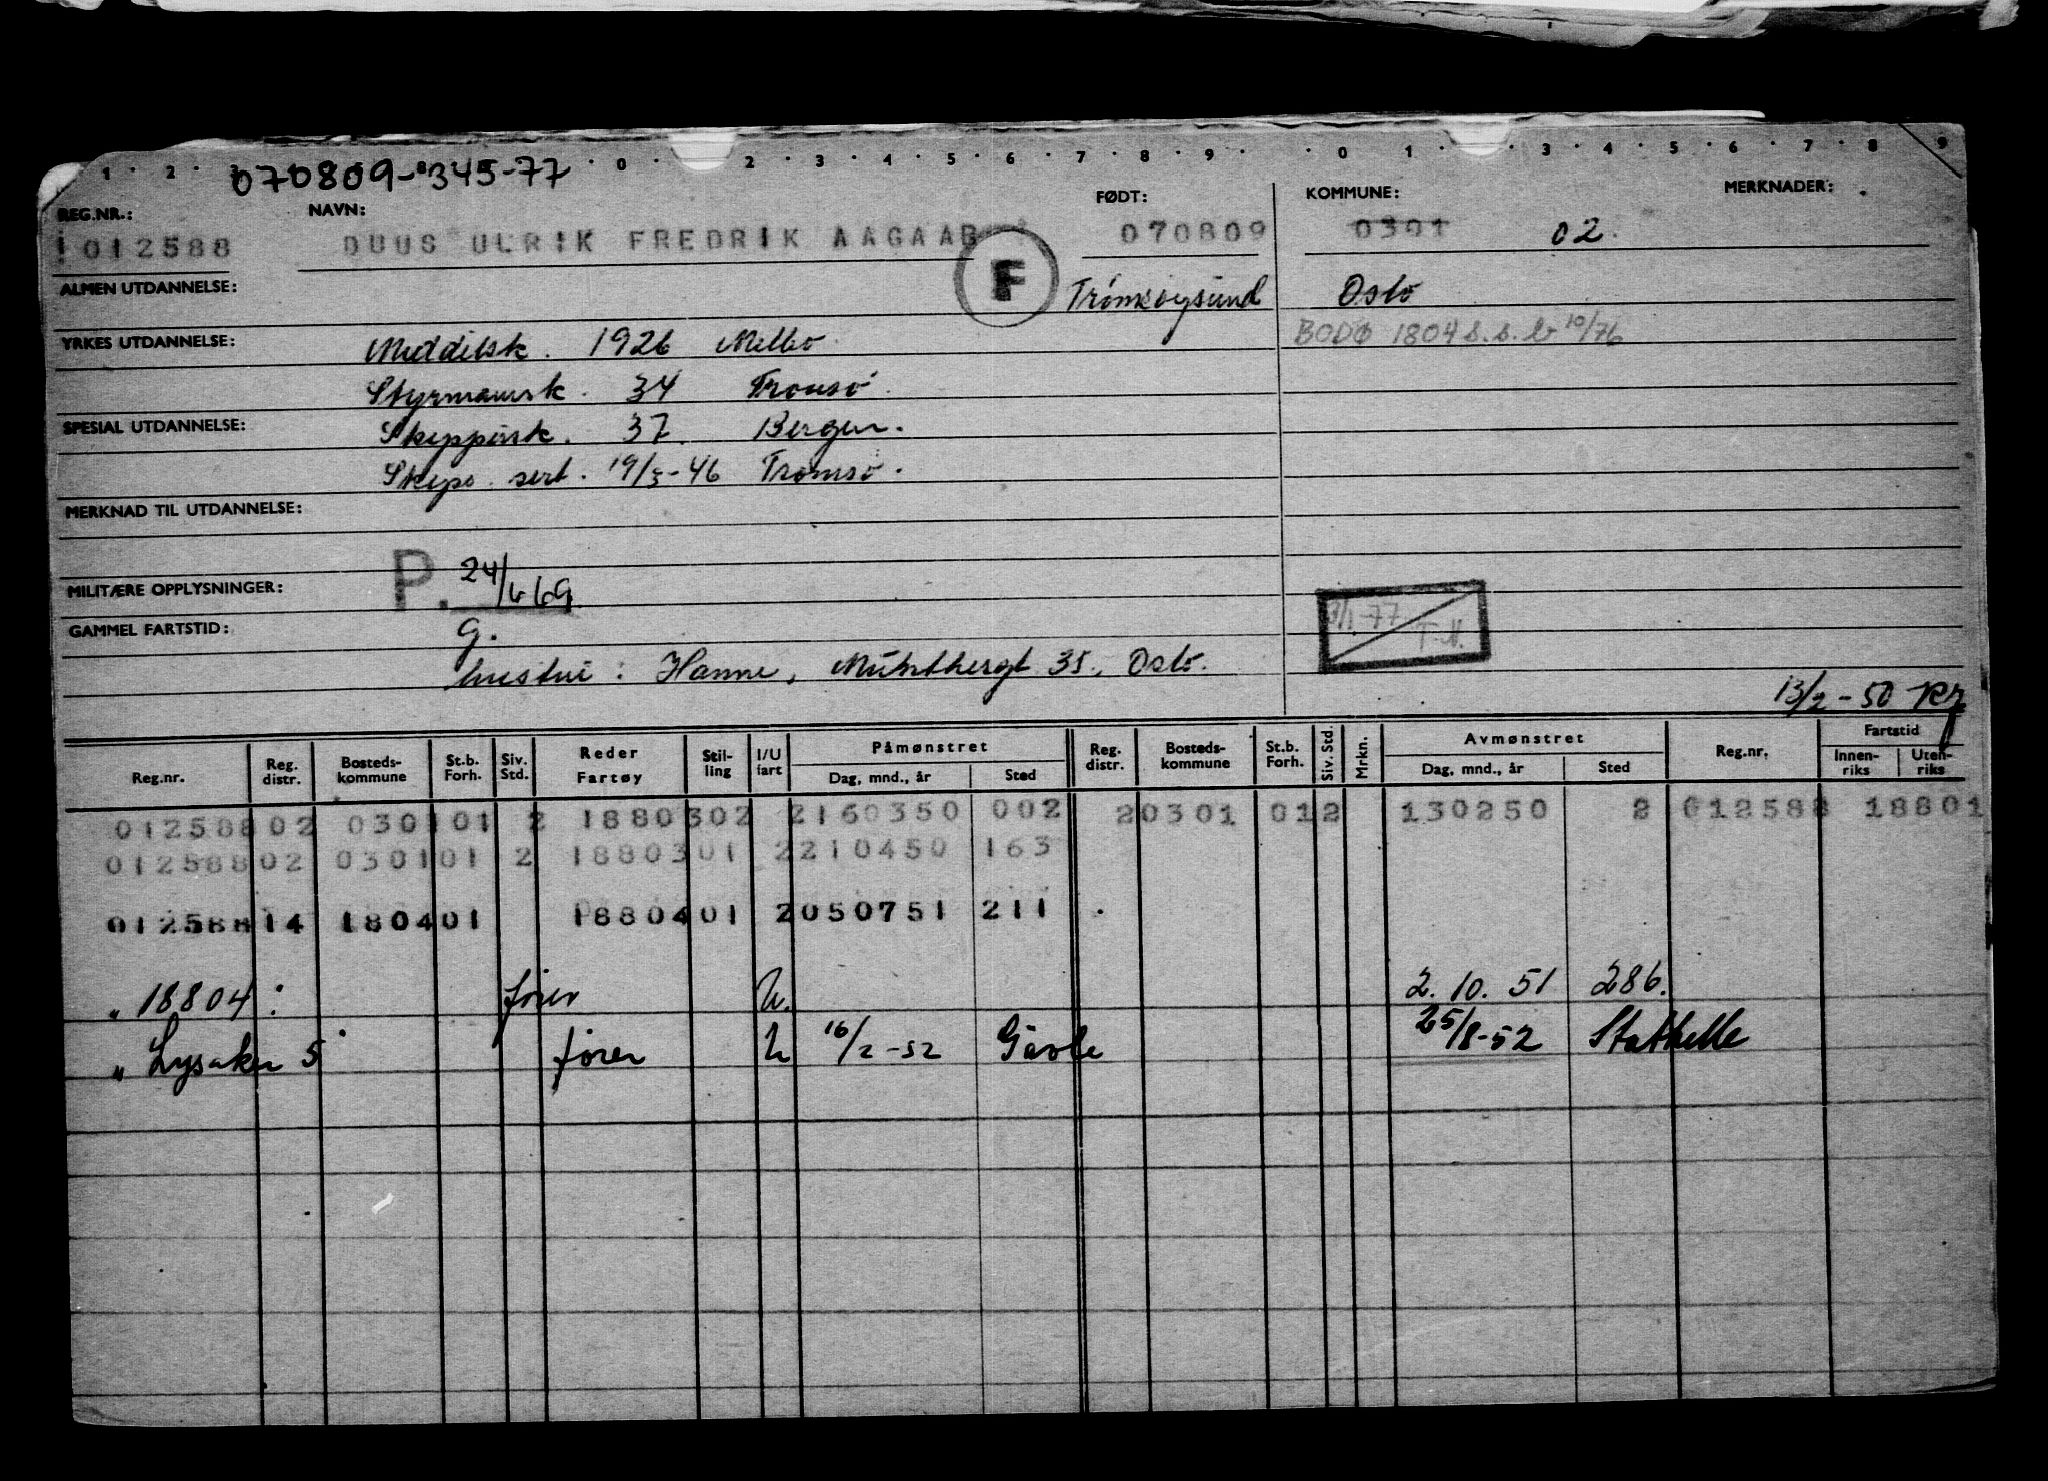 1 · 2 · 0 · 2 · 3 · 4 · 5 · 6 · 7 · 8 · 9 · · 0 1 · 3 · 4 · 5 · 6 · 7 · 8 9
070809-345-77
REG.NR.: NAVN: FØDT: KOMMUNE: MERKNADER:
012588 DUUS ULRIK FREDRIK AAGAAR 070809 0301 02.
F
ALMEN UTDANNELSE: Oslo
YRKES UTDANNELSE: Middelsk. 1926 Melbo BODØ 1804 10/76
Styrmannsk. 34 Tromsø.
SPESIAL UTDANNELSE: Skippersk. 37. Bergen.
Skips. sert. 19/3-46 Tromsø.
MERKNAD TIL UTDANNELSE:
P. 24/6 69
MILITÆRE OPPLYSNINGER: 3/1-77
GAMMEL FARTSTID: g. T-N.
hustru: Hanne, 35, Oslo.
13/2-50 Kr
Reg.nr. Reg. distr. Bosteds-kommune St.b. Forh. Siv. Std. Reder Fartøy Stil-ling I/U fart Påmønstret Dag, mnd., år Sted Reg. distr. Bosteds-kommune St.b. Forh. Siv. Std. Mrkn. Avmønstret Dag, mnd., år Sted Reg.nr. Fartstid Innen-riks Uten-riks
012588 02 0301 01 2 18803 02 2 160350 002 2 0301 01 2 130250 2 012588 18801
012588 02 0301 01 2 18803 01 2 210450 163
012588 14 1804 01 18804 01 2 050751 211
" 18804 : fører U. 2. 10. 51 286.
" Lysaker 5 fører U 16/2-52 Gävle 25/8-52 Stathelle